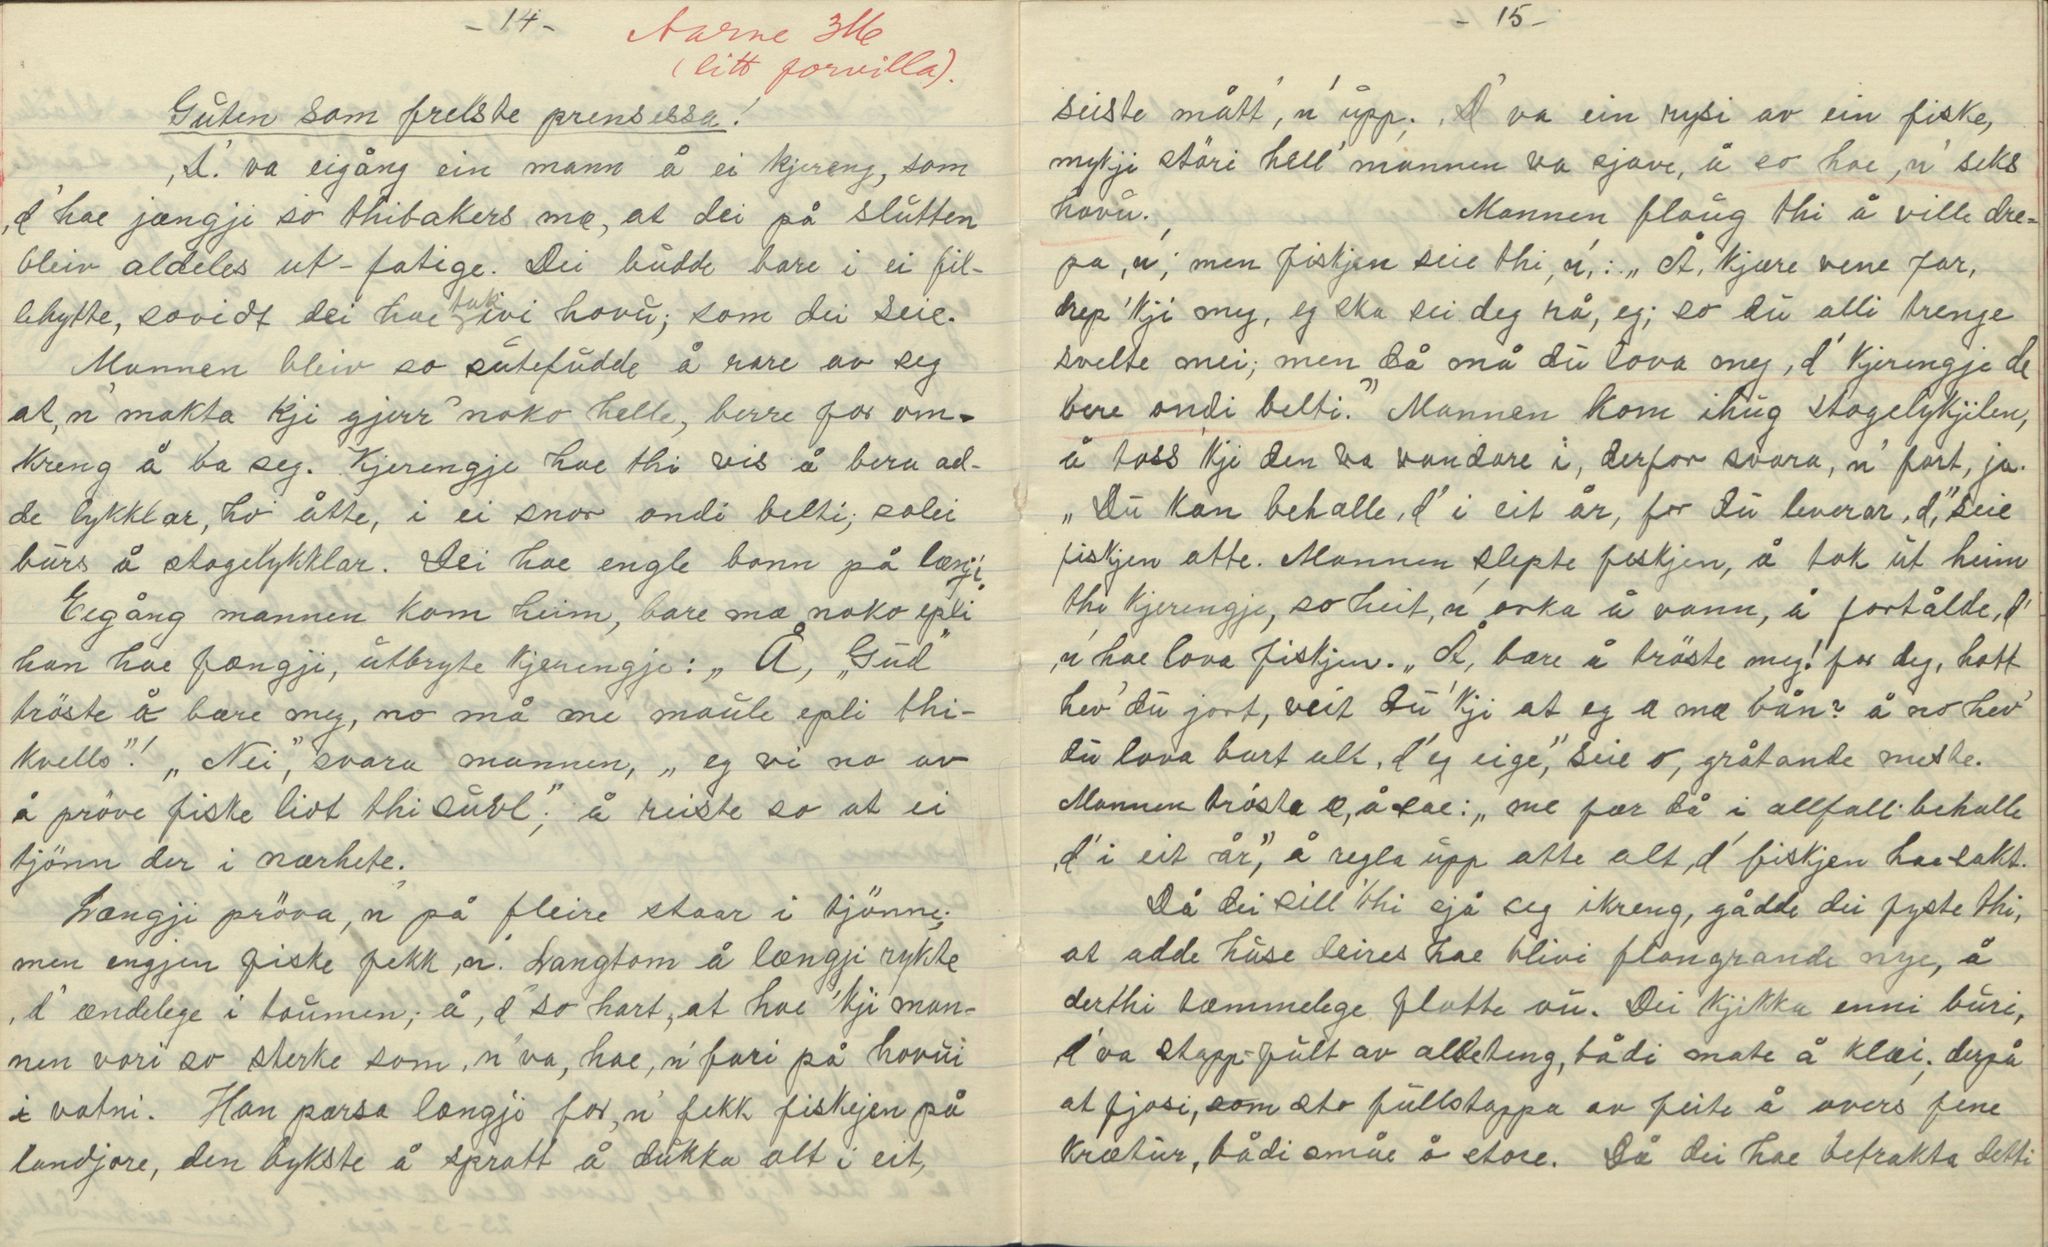 - 14 -
Aarne 316
(litt forvilla).
Guten som frelste prensessa!
,D' va eigång ein mann å ei kjereng, som
,d' hae jængji so thibakers mæ, at dei på slutten
bleiv aldeles ut-fatige. Dei budde bare i ei fil-
lehytte, sovidt dei hae tak ivi hovu; som dei seie.
Mannen bleiv so sutefudde å rare av seg
at ,n' makta kji gjerr' noko helle, berre for om-
kreng å ba seg. Kjerengje hae thi vis å bera ad-
de lykklar, ho åtte, i ei snor ondi belti; solei
burs å stogelykklar. Dei hae engle bonn på længji.
Eigång mannen kom heim, bare mæ noko epli
han hae fængji, utbryte kjerengje: „Å, „Gud"
tröste å bære meg, no må me maule epli thi-
kvells"! „Nei", svara mannen, „eg vi no av
å pröve fiske lidt thi suvl"; å reiste so at ei
tjönn der i nærhete.
Længji pröva ,n' på fleire staar i tjönne;
men engjen fiske fekk ,n'. Langtom å længji rykte
,d' ændelege i taumen; å ,d' so hart, at hae 'kji man-
nen vori so sterke som ,n' va, hae ,n' fari på hovui
i vatni. Han pærsa længji for ,n' fekk fiskjen på
landjore, den bykste å spratt å dukka alt i eit,
- 15 -
seiste mått' ,n' upp. ,D' va ein rysi av ein fiske,
mykji störi hell' mannen va sjave, å so hae ,n' seks
hovu. Mannen flaug thi å ville dre-
pa ,n'; men fiskjen seie thi ,n': „Å, kjære vene far,
drep 'kji meg, eg ska sei deg rå, eg; so du alli trenge
svelte mei; men då må du lova meg ,d' kjerengje de
bere ondi belti." Mannen kom ihug stogelykjilen,
å toss 'kji den va vandare i, derfor svara ,n' fort, ja.
„Du kan behalle ,d' i eit år, for du leverar ,d'," seie
fiskjen atte. Mannen slepte feskjen, å tok ut heim
thi kjerengje, so heit ,n' orka å vann, å fortålde ,d'
,n' hae lova fiskjen. „Å, bære å tröste meg! for deg, hott
hev' du jort, veit du 'kji at eg a mæ bån? å no hev'
du lova burt alt ,d' eg eige", seie o, gråtande meste.
Mannen trösta o, å sae: „me fær då i allfall behalle
,d' i eit år", å regla upp atte alt ,d' fiskjen hae sakt.
Då dei sill thi sjå seg ikreng, gådde dei fyste thi,
at adde huse deires hae blivi flongrande nye, å
derthi tæmmelege flotte au. Dei kjikka enni buri,
,d' va stapp-fult av alleteng, bådi mate å klæi, derpå
at fjosi, som sto fullstappa av feite å overs fene
krætur, bådi småe å store. Då dei hae befrakta detti